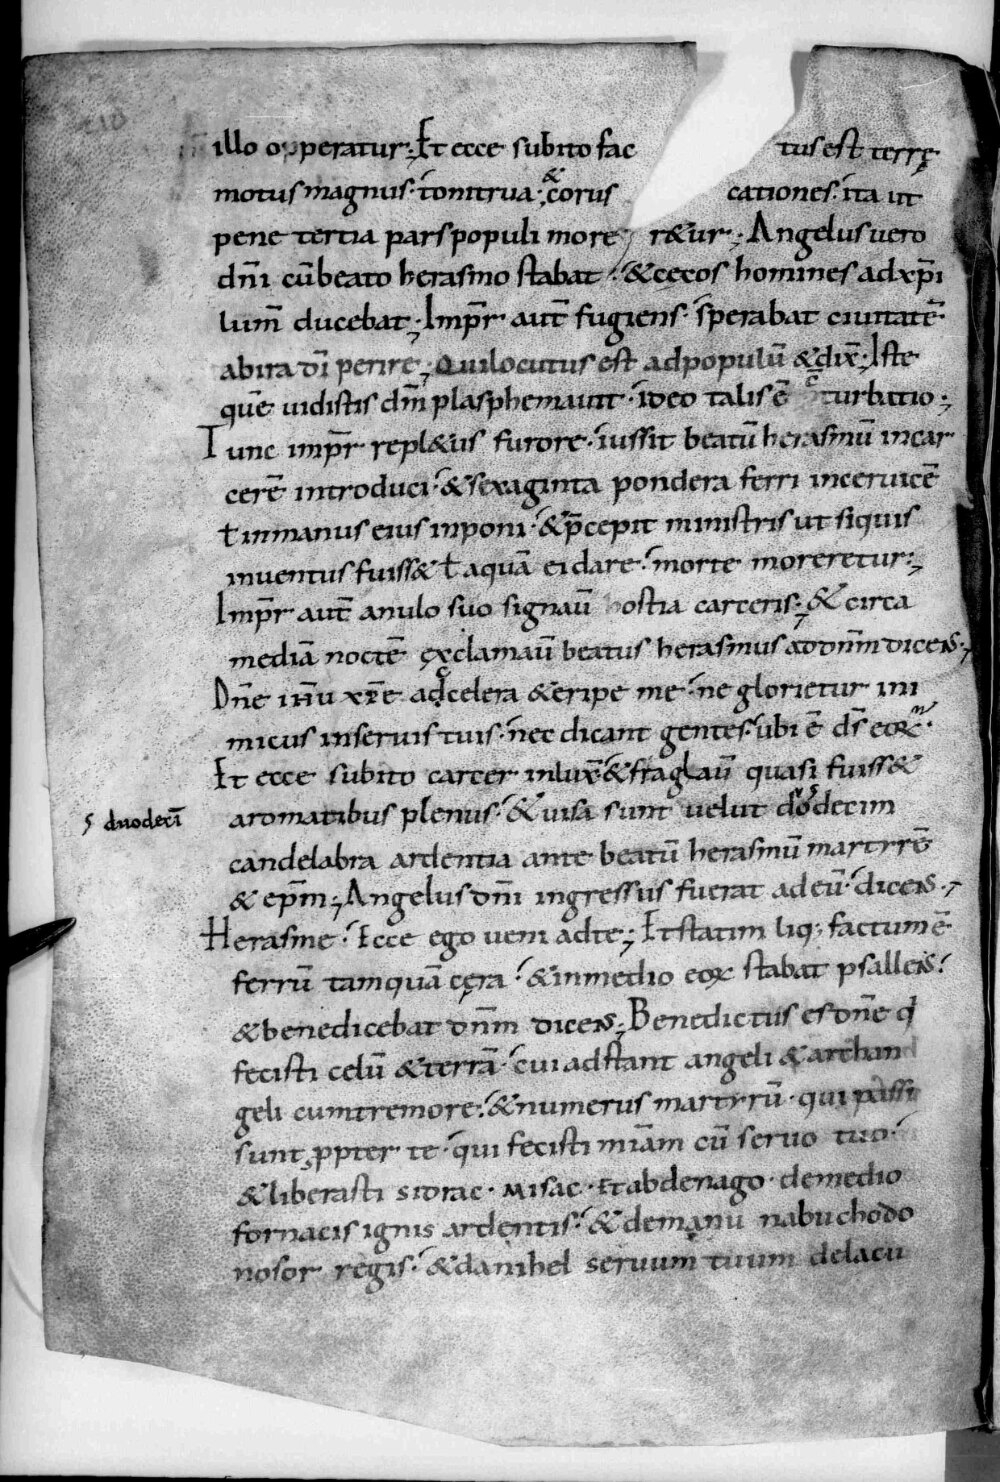 illo opperatur; Et ecce subito fac tus est terrę
motus magnus· tonitrua· & corus cationes· ita ut
pene tertia pars populi more r&ur; Angelus uero
dn̄i cū beato herasmo stabat· & cęcos homines ad xp̄i
lum̄ ducebat; Imp̄r aut̄ fugiens· sperabat ciuitatē
ab ira dī perire; Qui locutus est ad populū & dix̄; Iste
quē uidistis dn̄m plasphemauit· ideo talis ē turbatio;
Tunc imp̄r repl&us furore· iussit beatū herasmū incar
cerē introduci· & sexaginta pondera ferri in ceruicē
ł in manus eius inponi· & p̄cepit ministris ut siquis
inuentus fuiss& ł aquā ei dare· morte moreretur;
Imp̄r aut̄ anulo suo signaū hostia carceris; & circa
mediā noctē exclamaū beatus herasmus ad dn̄m dicens;
Dn̄e ih̄u xp̄e adcelera & eripe me· ne glorietur ini
micus in seruis tuis· nec dicant gentes· ubi ē dс̄ eoꝝ·
Et ecce subito carcer inlux̄· & fraglaū quasi fuiss&
aromatibus plenus· & uisa sunt uelut duodecim
duodecī
candelabra ardentia ante beatū herasmū martyrē
& ep̄m; Angelus dn̄i ingressus fuerat ad eū· dicens·
Herasme· Ecce ego ueni ad te; Et statim liq; factum ē
ferrū tamquā cęra· & in medio eoꝝ stabat psallens·
& benedicebat dn̄m dicens; Benedictus es dn̄e q̄
fecisti celū & terrā· cui adstant angeli & archan
geli cum tremore· & numerus martyrū· qui passi
sunt ꝓpter te· qui fecisti miām cū seruo tuo·
& liberasti sidrac· misac· et abdenago· de medio
fornacis ignis ardentis· & de manu nabuchodo
nosor regis· & danihel seruum tuum de lacu